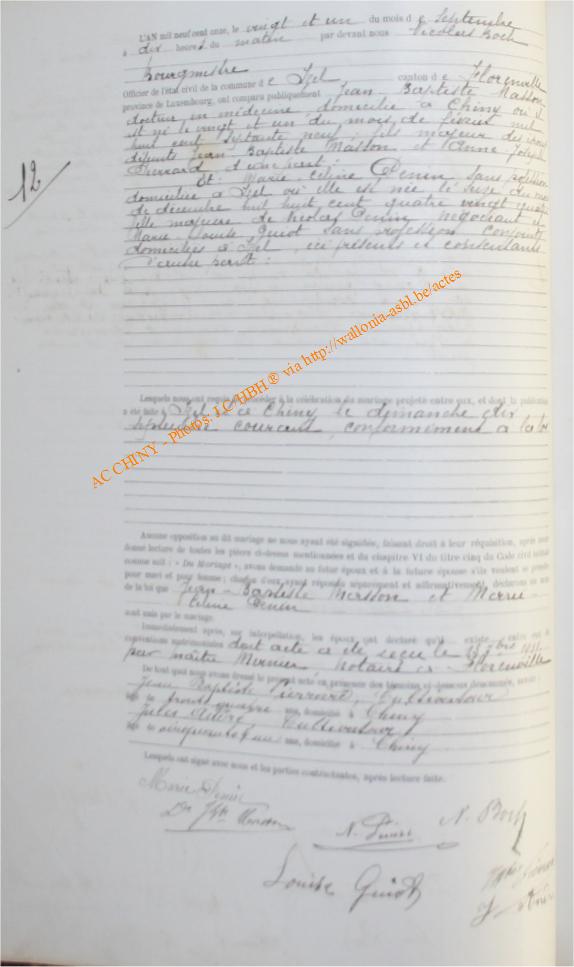 L'AN mil neuf cent onze, le vingt et un du mois de Septembre
à dix heures du matin par devant nous Nicolas Boch
Bourgmestre
Officier de l'état civil de la commune de Izel canton de Florenville
province de Luxembourg, ont comparu publiquement Jean-Baptiste Masson
docteur en médecine domicilié à Chiny où il
est né le vingt et un du mois de février mil
huit cent septante neuf, fils majeur des époux
défunts Jean Baptiste Masson et Anne Joseph
Pierrard d'une part:
Et Marie Céline Denin sans profession
domiciliée à Izel où elle est née le seize du mois
de décembre mil huit cent quatre vingt quatre
fille majeure de Nicolas Denin négociant et
Marie Louise Guiot sans profession conjoints
domiciliés à Izel, ici présents et consentants
d'autre part:
12
Lesquels nous ont requis de procéder à la célébration du mariage projeté entre eux, et dont la publication
a été faite à Izel et à Chiny le dimanche dix
septembre courant, conformément à la loi
Aucune opposition au dit mariage ne nous ayant été signifiée, faisant droit à leur réquisition, après avoir
donné lecture de toutes les pièces ci-dessus mentionnées et du chapitre VI du titre cinq du Code civil intitulé
comme suit : « Du Mariage », avons demandé au futur époux et à la future épouse s'ils veulent se prendre
pour mari et pour femme ; chacun d'eux ayant répondu séparément et affirmativement, déclarons au nom
de la loi que Jean-Baptiste Masson et Marie
Céline Denin
sont unis par le mariage.
Immédiatement après, sur interpellation, les époux ont déclaré qu'il existe entre eux de
conventions matrimoniales dont acte a été reçu le
par maître Mernier notaire à Florenville
De tout quoi nous avons dressé le présent acte en présence des témoins ci-dessous dénommés, savoir :
Jean Baptiste Pierrard, Cultivateur
âgé de trente quatre ans, domicilié à Chiny
Jules André Cultivateur
âgé de cinquante ans, domicilié à Chiny
Lesquels ont signé avec nous et les parties contractantes, après lecture faite.
Marie Denin
Dr Jbte Masson
N. Denin
N. Boch
Louise Guiot
AC CHINY - Photos: J.C HBH ® via http://wallonia-asbl.be/actes